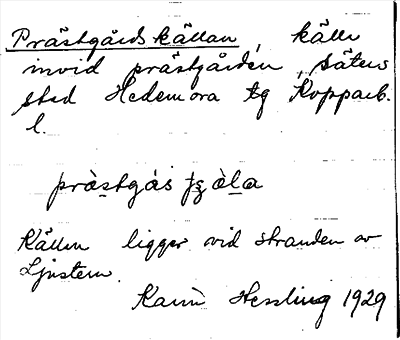 Prästgårdskällan, källa
invid prästgården, Säters
stad Hedemora tg Kopparb.
l.
prästgås ʃʒäla
Källan ligger vid stranden av
Ljustern.
Karin Hessling 1929